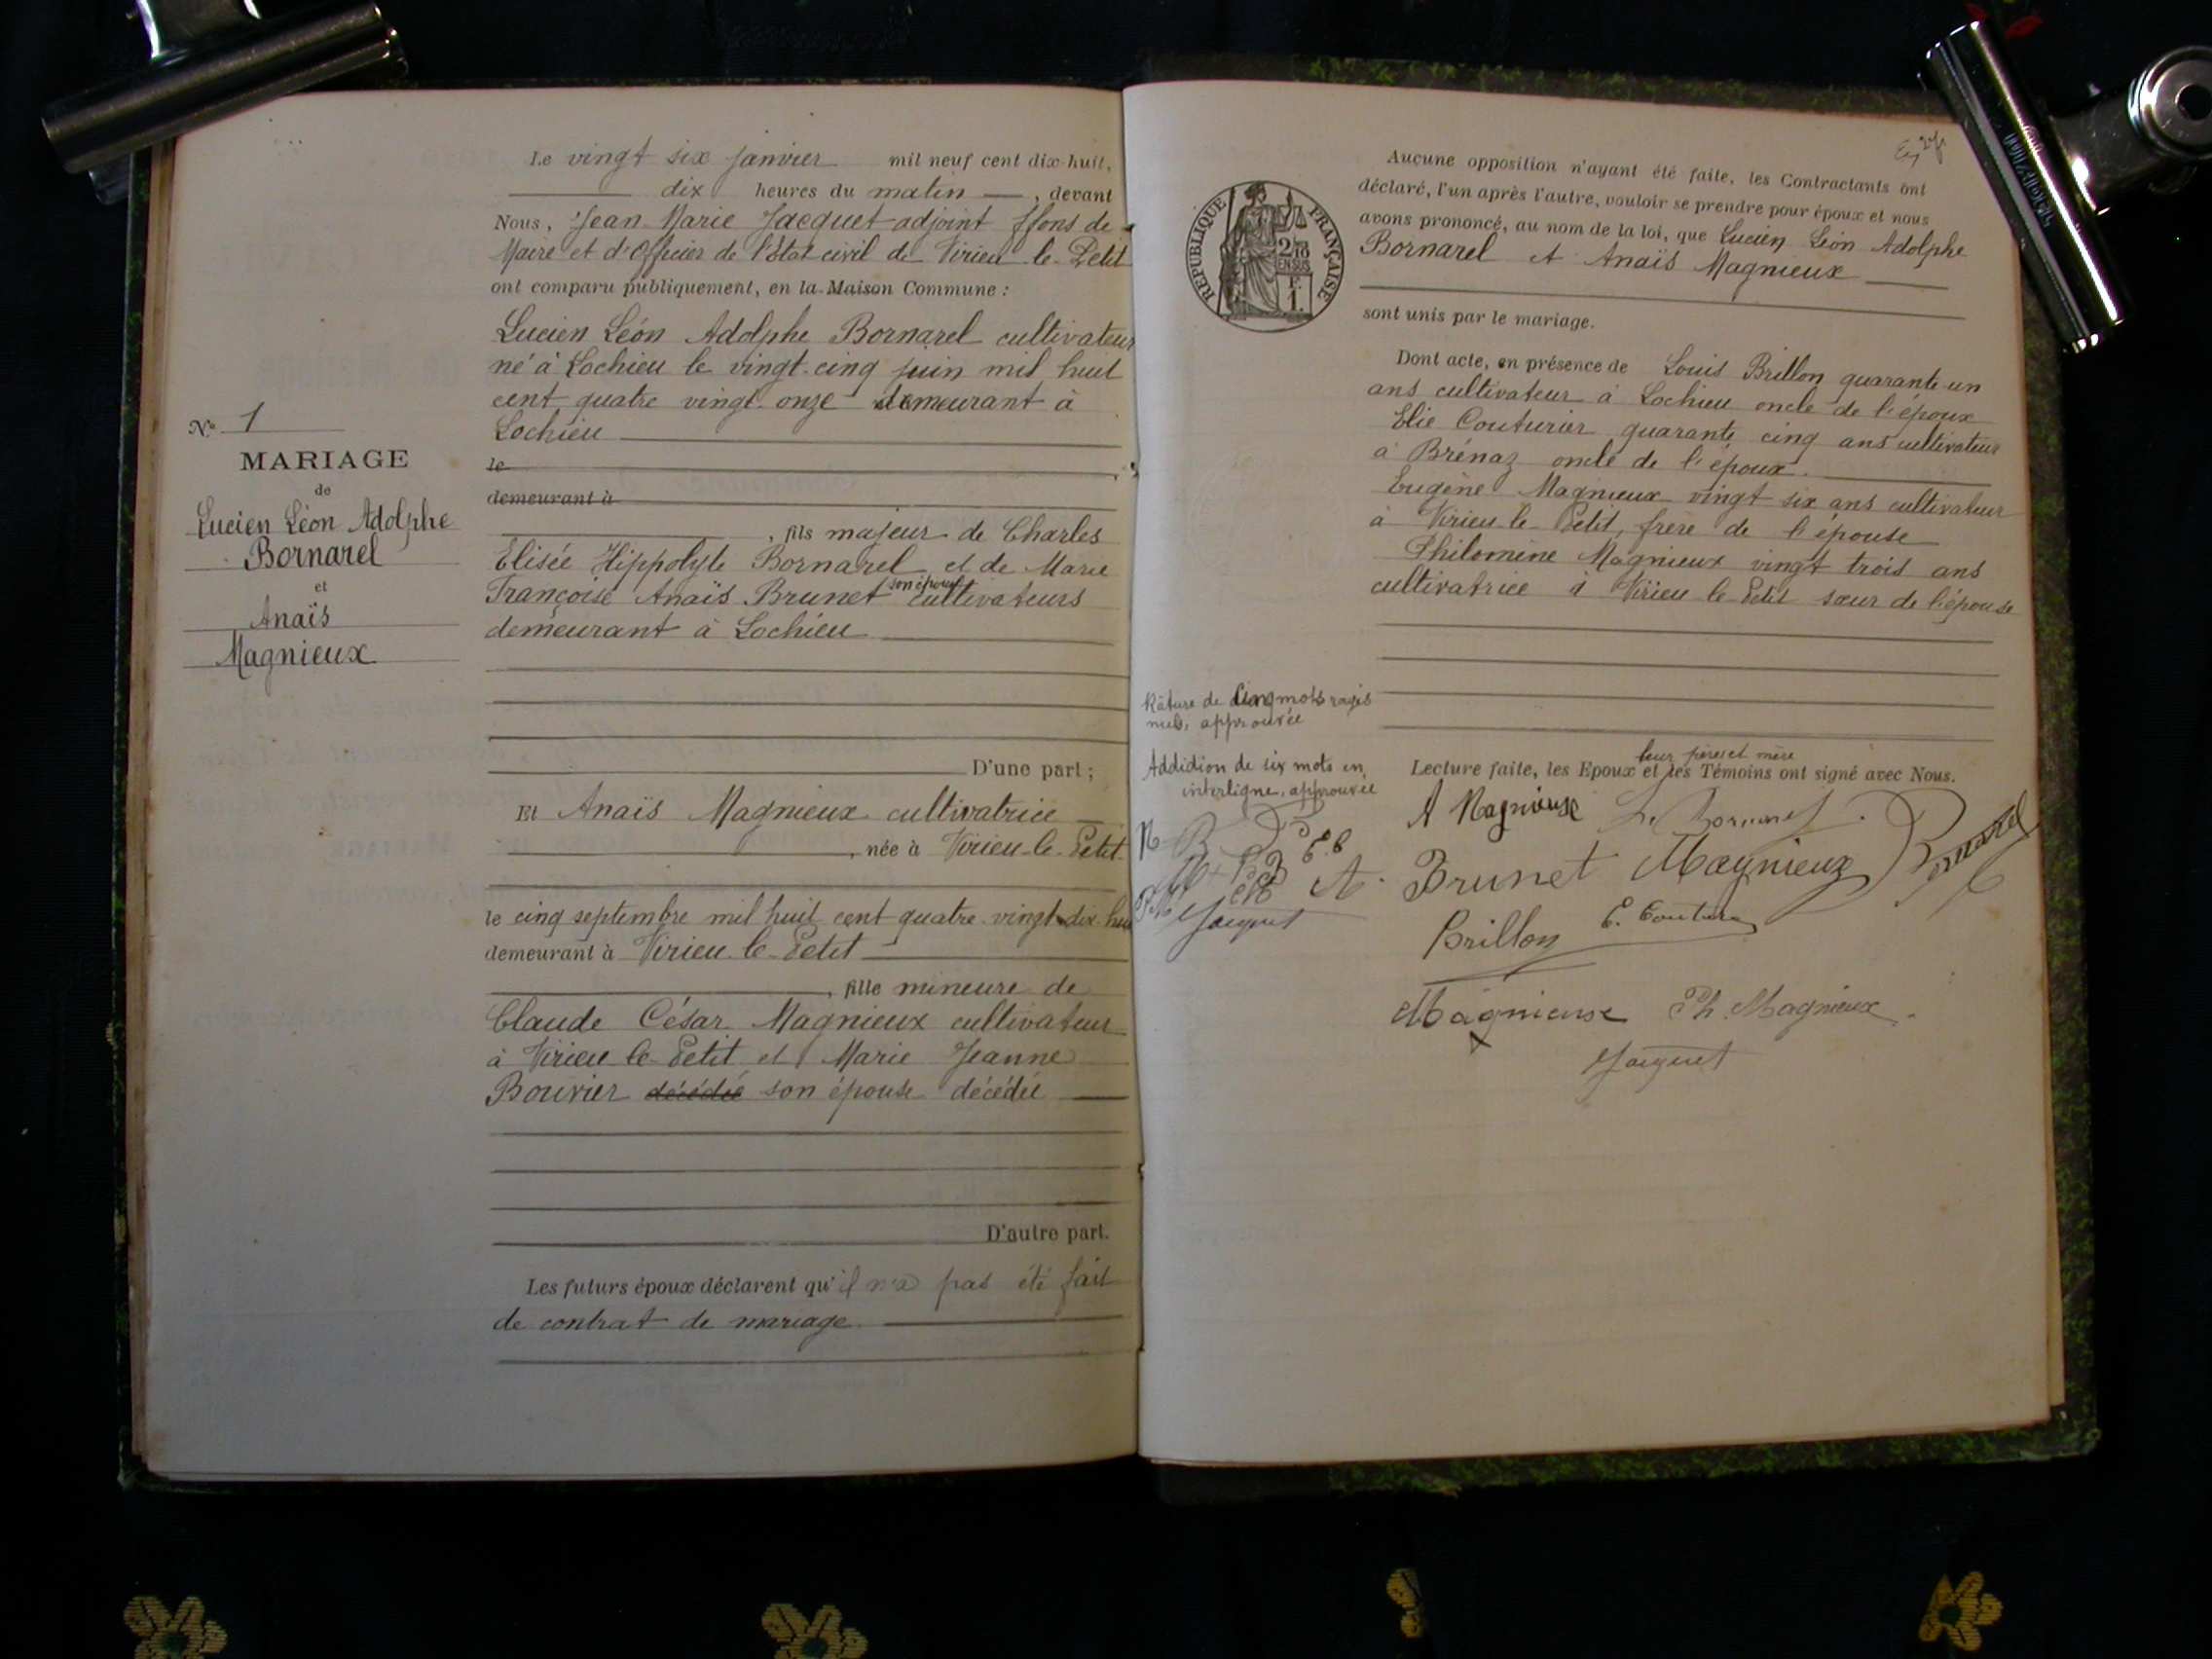 N° 1
MARIAGE
de
Lucien Léon Adolphe
Bornarel
et
Anaïs
Magnieux
Le vingt six janvier mil neuf cent dix-huit,
dix heures du matin, devant
Nous, Jean Marie Jacquet adjoint ffons de
Maire et d'Officier de l'Etat civil de Virieu-le-Petit
ont comparu publiquement, en la Maison Commune :
Lucien Léon Adolphe Bornarel cultivateur
né à Lochieu le vingt-cinq juin mil huit
cent quatre vingt-onze demeurant à
Lochieu
le
demeurant à
, fils majeur de Charles
Elisée Hippolyte Bornarel et de Marie
son épouse
Françoise Anaïs Brunet cultivateurs
demeurant à Lochieu
D'une part ;
Et Anaïs Magnieux cultivatrice
, née à Virieu-le-Petit
le cinq septembre mil huit cent quatre-vingt-dix-huit
demeurant à Virieu-le-Petit
, fille mineure de
Claude César Magnieux cultivateur
à Virieu-le-Petit et Marie Jeanne
Bouvier décédée son épouse décédée
D'autre part.
Les futurs époux déclarent qu'il n'a pas été fait
de contrat de mariage.
RÉPUBLIQUE FRANÇAISE
2/10
EN SUS
F.
1.
Aucune opposition n'ayant été faite, les Contractants ont
déclaré, l'un après l'autre, vouloir se prendre pour époux et nous
avons prononcé, au nom de la loi, que Lucien Léon Adolphe
Bornarel et Anaïs Magnieux
sont unis par le mariage.
Dont acte, en présence de Louis Brillon quarante-un
ans cultivateur à Lochieu oncle de l'époux
Elie Couturier quarante cinq ans cultivateur
à Brénaz oncle de l'époux.
Eugène Magnieux vingt six ans cultivateur
à Virieu-le-Petit, frère de l'épouse
Philomène Magnieux vingt trois ans
cultivatrice à Virieu-le-Petit sœur de l'épouse
Râture de Cinq mots rayés
nuls, approuvée
Addidion de six mots en
interligne, approuvée
leur père et mère
Lecture faite, les Epoux et les Témoins ont signé avec Nous.
A Magnieux L. Bornarel
Brunet Magnieux Bornarel
Brillon E. Couturier
Magnieux Ph. Magnieux
Jacquet
Jacquet